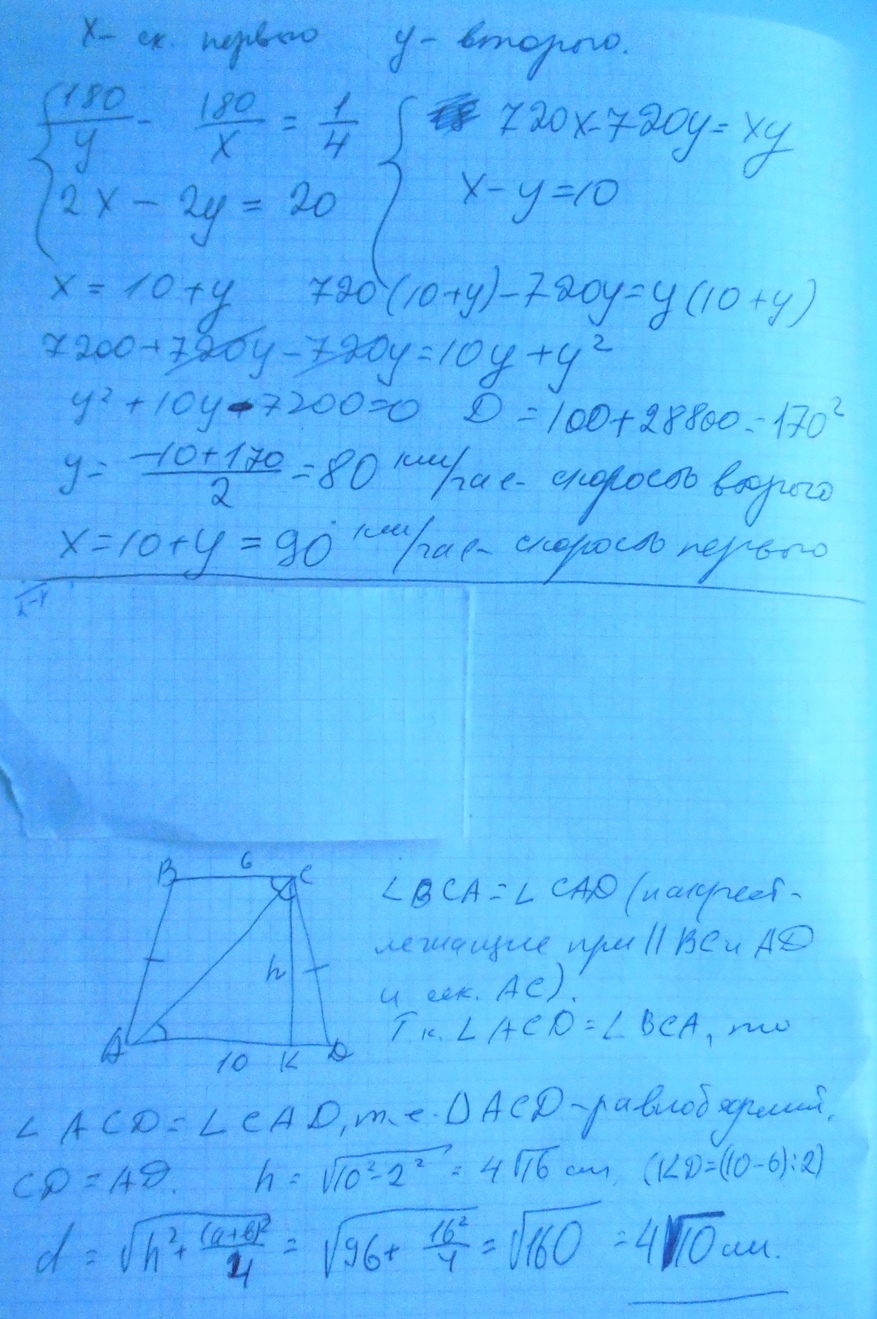 x - ск. первого y - второго.
{ 180/y - 180/x = 1/4 { 720x - 720y = xy
2x - 2y = 20 x - y = 10
x = 10 + y 720(10+y) - 720y = y(10+y)
7200 + 720y - 720y = 10y + y²
y² + 10y - 7200 = 0 D = 100 + 28800 = 170²
y = (-10+170)/2 = 80 км/час - скорость второго
x = 10 + y = 90 км/час - скорость первого
B 6 C
h
A 10 K D
∠BCA = ∠CAD (накрест-
лежащие при || BC и AD
и сек. AC).
Т.к. ∠ACD = ∠BCA, то
∠ACD = ∠CAD, т.е. ΔACD - равнобедренный,
CD = AD. h = √(10² - 2²) = 4√6 см (KD = (10-6):2)
d = √(h² + (a+b)²/4) = √(96 + 16²/4) = √160 = 4√10 см.